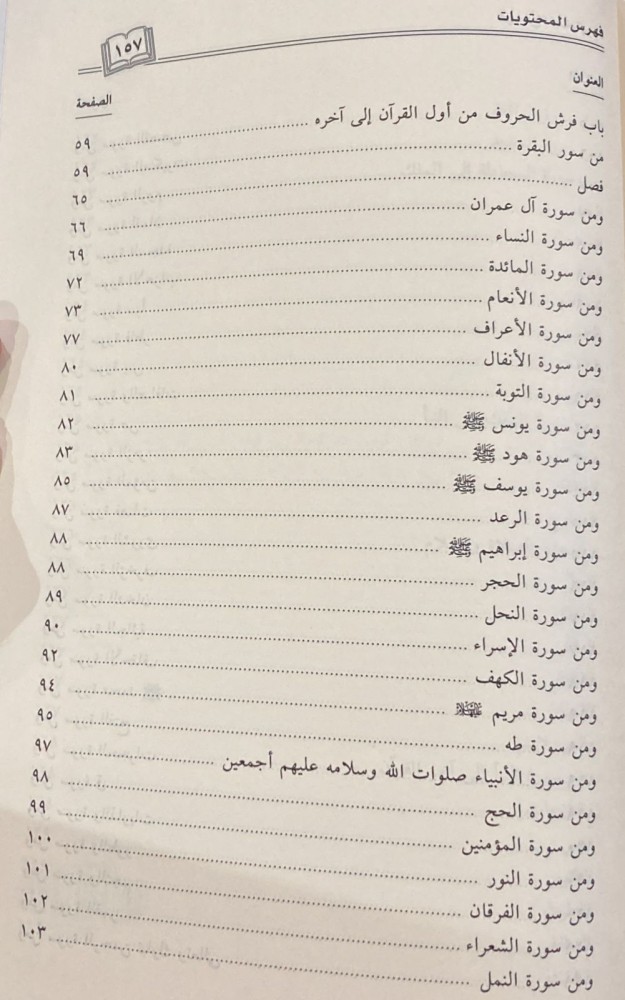 فهرس المحتويات
١٥٧
العنوان الصفحة
باب فرش الحروف من أول القرآن إلى آخره ........ ٥٩
من سور البقرة ........ ٥٩
فصل ........ ٦٥
ومن سورة آل عمران ........ ٦٦
ومن سورة النساء ........ ٦٩
ومن سورة المائدة ........ ٧٢
ومن سورة الأنعام ........ ٧٣
ومن سورة الأعراف ........ ٧٧
ومن سورة الأنفال ........ ٨٠
ومن سورة التوبة ........ ٨١
ومن سورة يونس ﷺ ........ ٨٢
ومن سورة هود ﷺ ........ ٨٣
ومن سورة يوسف ﷺ ........ ٨٥
ومن سورة الرعد ........ ٨٧
ومن سورة إبراهيم ﷺ ........ ٨٨
ومن سورة الحجر ........ ٨٨
ومن سورة النحل ........ ٨٩
ومن سورة الإسراء ........ ٩٠
ومن سورة الكهف ........ ٩٢
ومن سورة مريم ........ ٩٤
ومن سورة طه ........ ٩٥
ومن سورة الأنبياء صلوات الله وسلامه عليهم أجمعين ........ ٩٧
ومن سورة الحج ........ ٩٨
ومن سورة المؤمنين ........ ٩٩
ومن سورة النور ........ ١٠٠
ومن سورة الفرقان ........ ١٠١
ومن سورة الشعراء ........ ١٠٢
ومن سورة النمل ........ ١٠٣